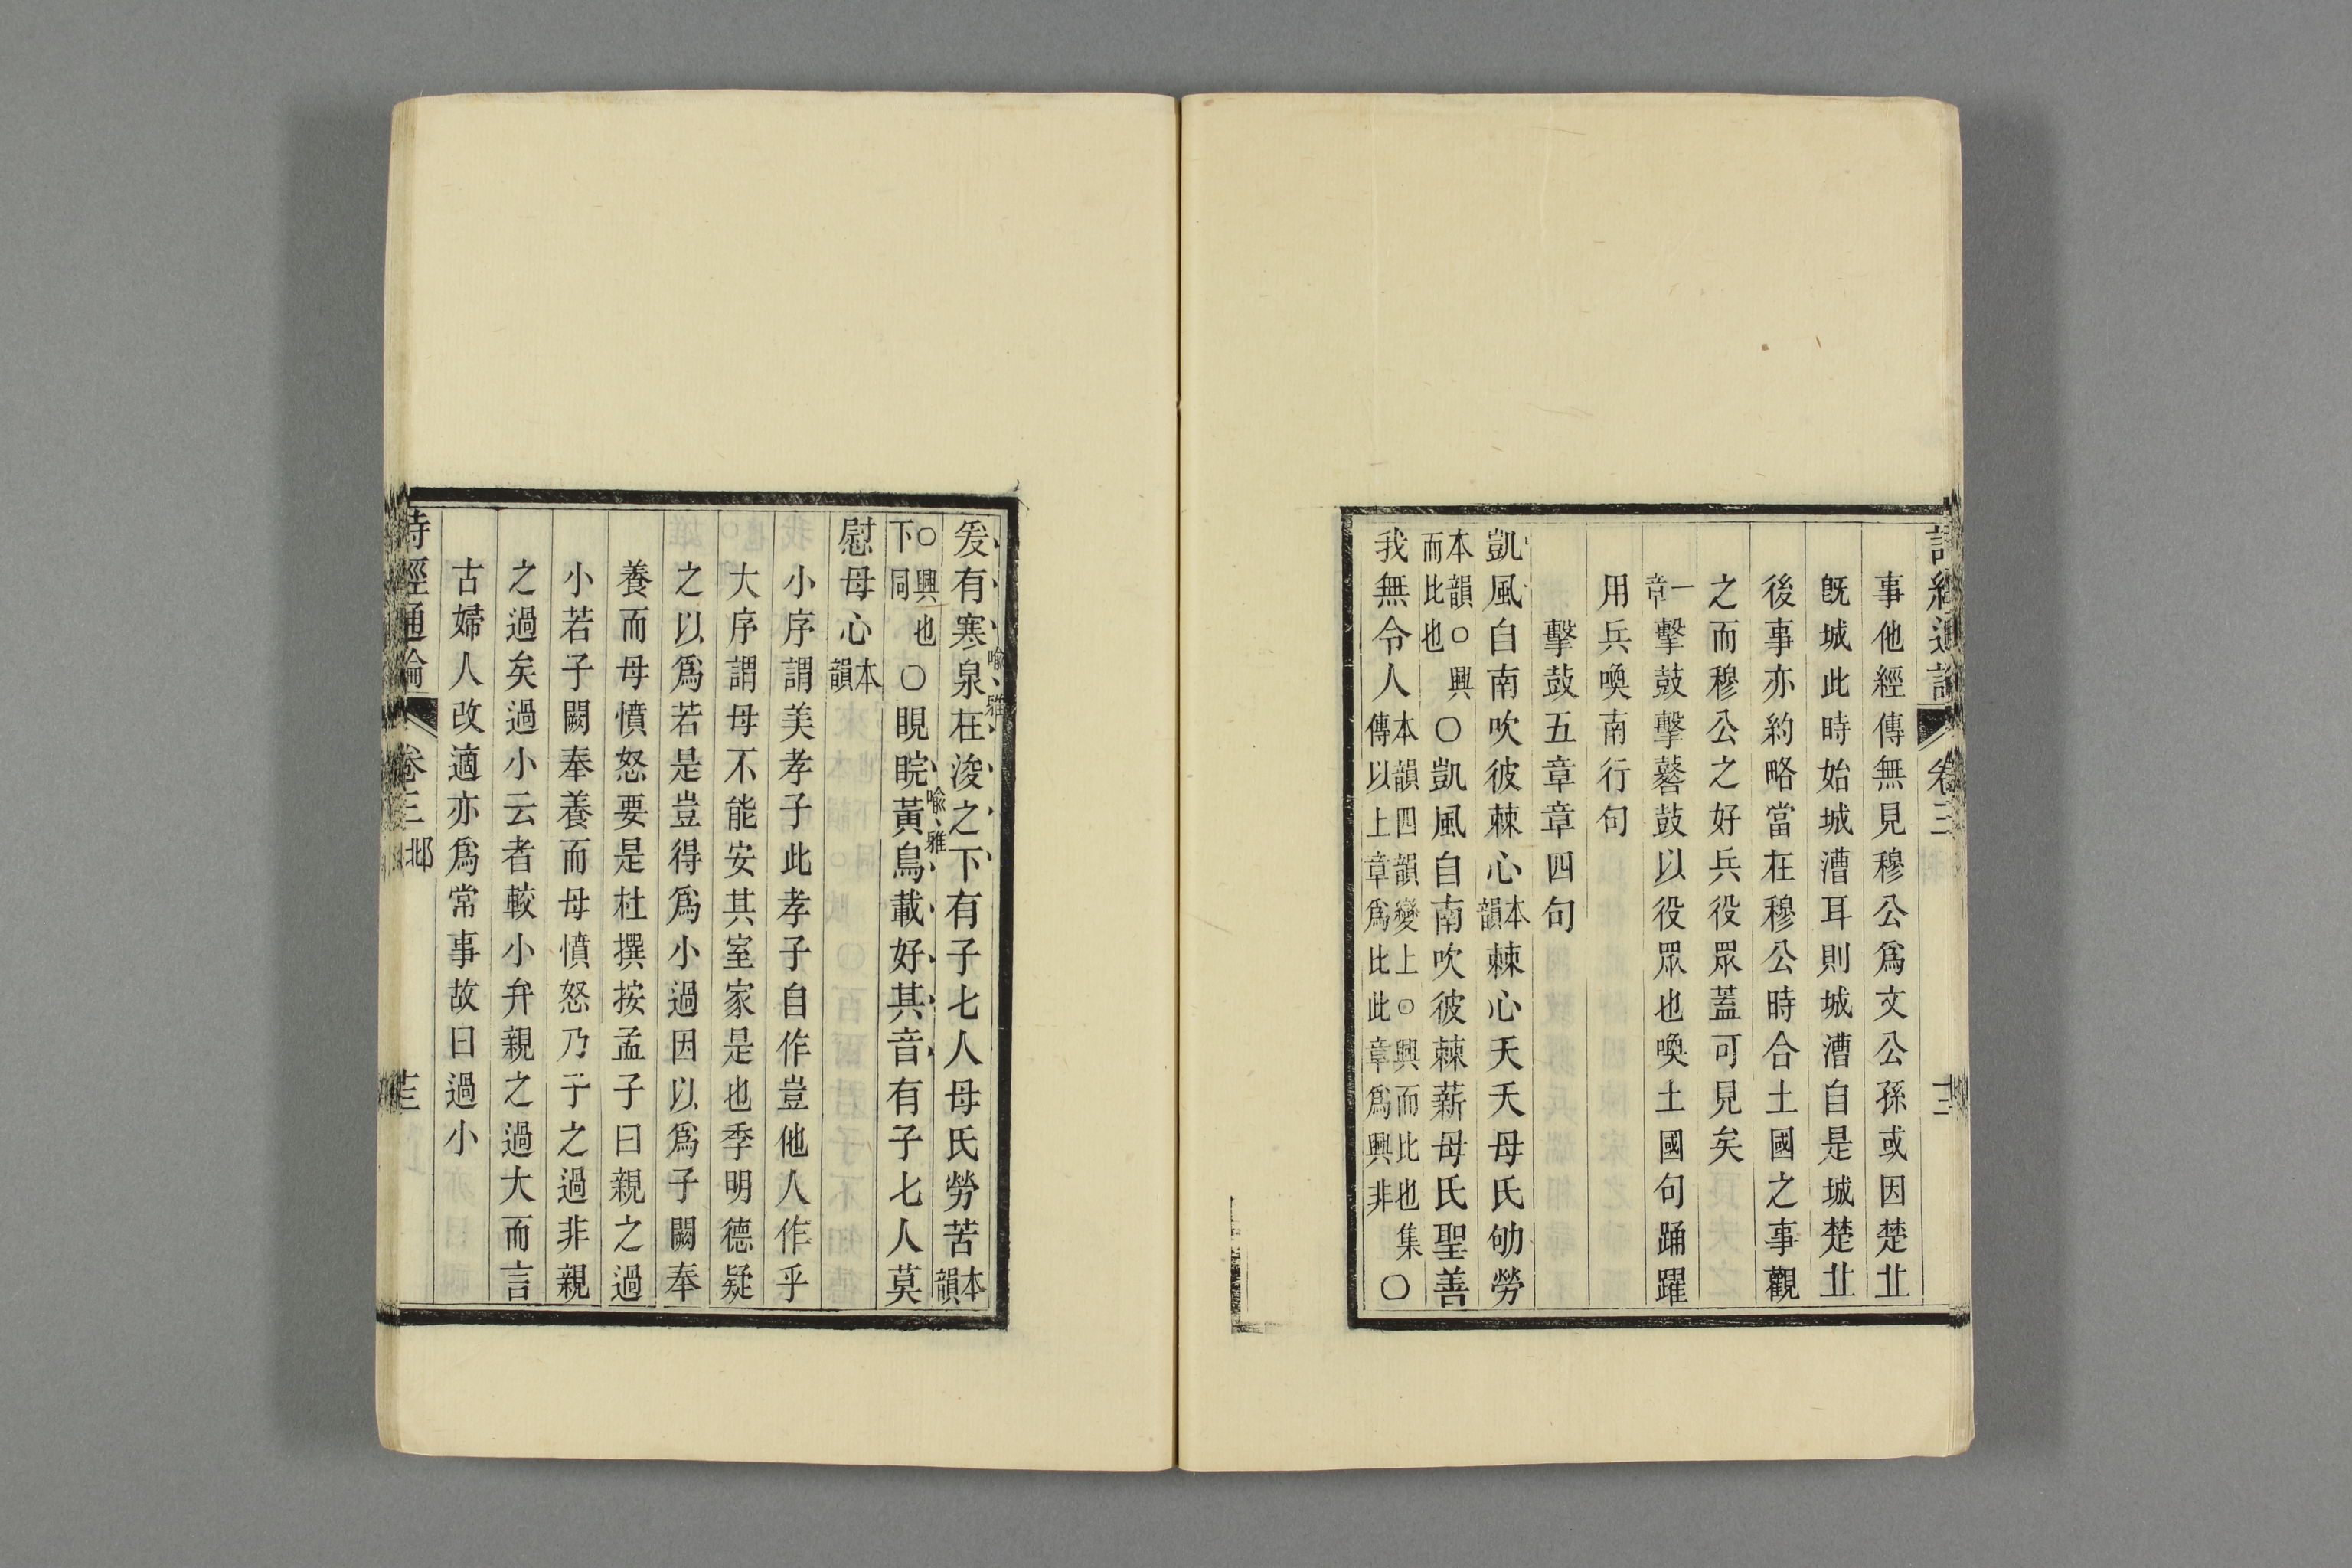 詩經通論 卷三 十二
事他經傳無見穆公爲文公孫或因楚北
旣城此時始城漕耳則城漕自是城楚北
後事亦約略當在穆公時合土國之事觀
之而穆公之好兵役眾蓋可見矣
一章擊鼓擊鼛鼓以役眾也喚土國句踊躍
用兵喚南行句
擊鼓五章章四句
凱風自南吹彼棘心本韻棘心夭夭母氏劬勞
本韻○興而比也○凱風自南吹彼棘薪母氏聖善
我無令人本韻四韻變上○興而比也集傳以上章爲比此章爲興非○
爰有寒泉在浚之下有子七人母氏勞苦本韻
喻雅
○興也下同○睍睆黃鳥載好其音有子七人莫
喻雅
慰母心本韻
小序謂美孝子此孝子自作豈他人作乎
大序謂母不能安其室家是也季明德疑
之以爲若是豈得爲小過因以爲子闕奉
養而母憤怒要是杜撰按孟子曰親之過
小若子闕奉養而母憤怒乃子之過非親
之過矣過小云者較小弁親之過大而言
古婦人改適亦爲常事故曰過小
詩經通論 卷三 邶 十三